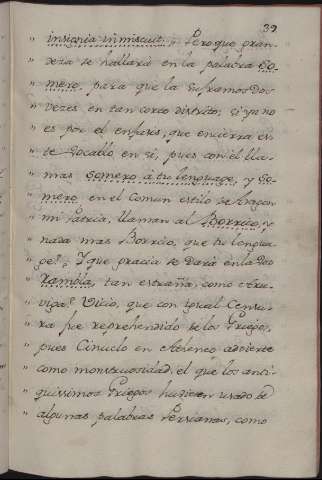 39
" insignia inmiscuit. " Pero que gran-
" deza se hallaria en la palabra So-
" mero, para que la suframos dos
" vezes en tan corto distrito; si ya no
" es por el enfasis, que encierra es-
" te Vocablo en si, pues con èl lla-
" mas Somero à tu lenguage, y So-
" mero en el comun estilo de Aragon
" mi Patria, llaman al Borrico, y
" nada mas Borrico, que tu lengua-
" ge? Y que gracia se dará en la voz
" tan estraña, como Atre-
" Vicio, que con igual Censu-
" ra fue reprehendido de los Griegos,
" pues Cinuclo en Atheneo advierte
" como monstruosidad, el que los anti-
" quissimos Griegos huviesen usado de
" algunas palabras Persianas, como